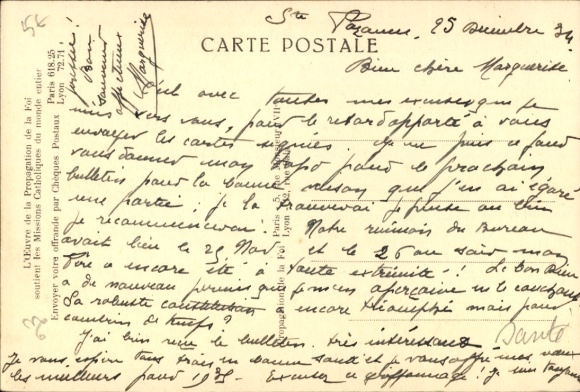 Ste Pazanne, 25 Décembre 34
CARTE POSTALE
Bien chère Marguerite.
C'est avec toutes mes excuses que je
viens vers vous, pour le retard apporté à vous
envoyer les cartes signées. Je ne puis ce jour
vous donner mon pour le prochain
bulletin pour la bonne raison que j'en ai égaré
une partie; je la trouverai je pense ou bien
je recommencerai! Notre réunion du Bureau
avait lieu le 29 Nov. et le 26 au soir mon
Père a encore été à toute extrémité!! Le bon Dieu
a de nouveau permis que
Sa robuste constitution a encore triomphé mais pour
combien de temps?
J'ai bien reçu le bulletin. très intéressant
Je vous espère tous trois en bonne santé et je vous offre mes vœux
les meilleurs pour 1935. Excusez ce griffonnage! Je suis
pressée! Bon
souvenir
affectueux
Marguerite
L'Œuvre de la Propagation de la Foi
soutient les Missions Catholiques du monde entier
Envoyer votre offrande par Chèques Postaux
Paris 618.25
Lyon 72.71
Propagation de la Foi
Paris 5, rue Monsieur (VII
Lyon 12, rue
Santé